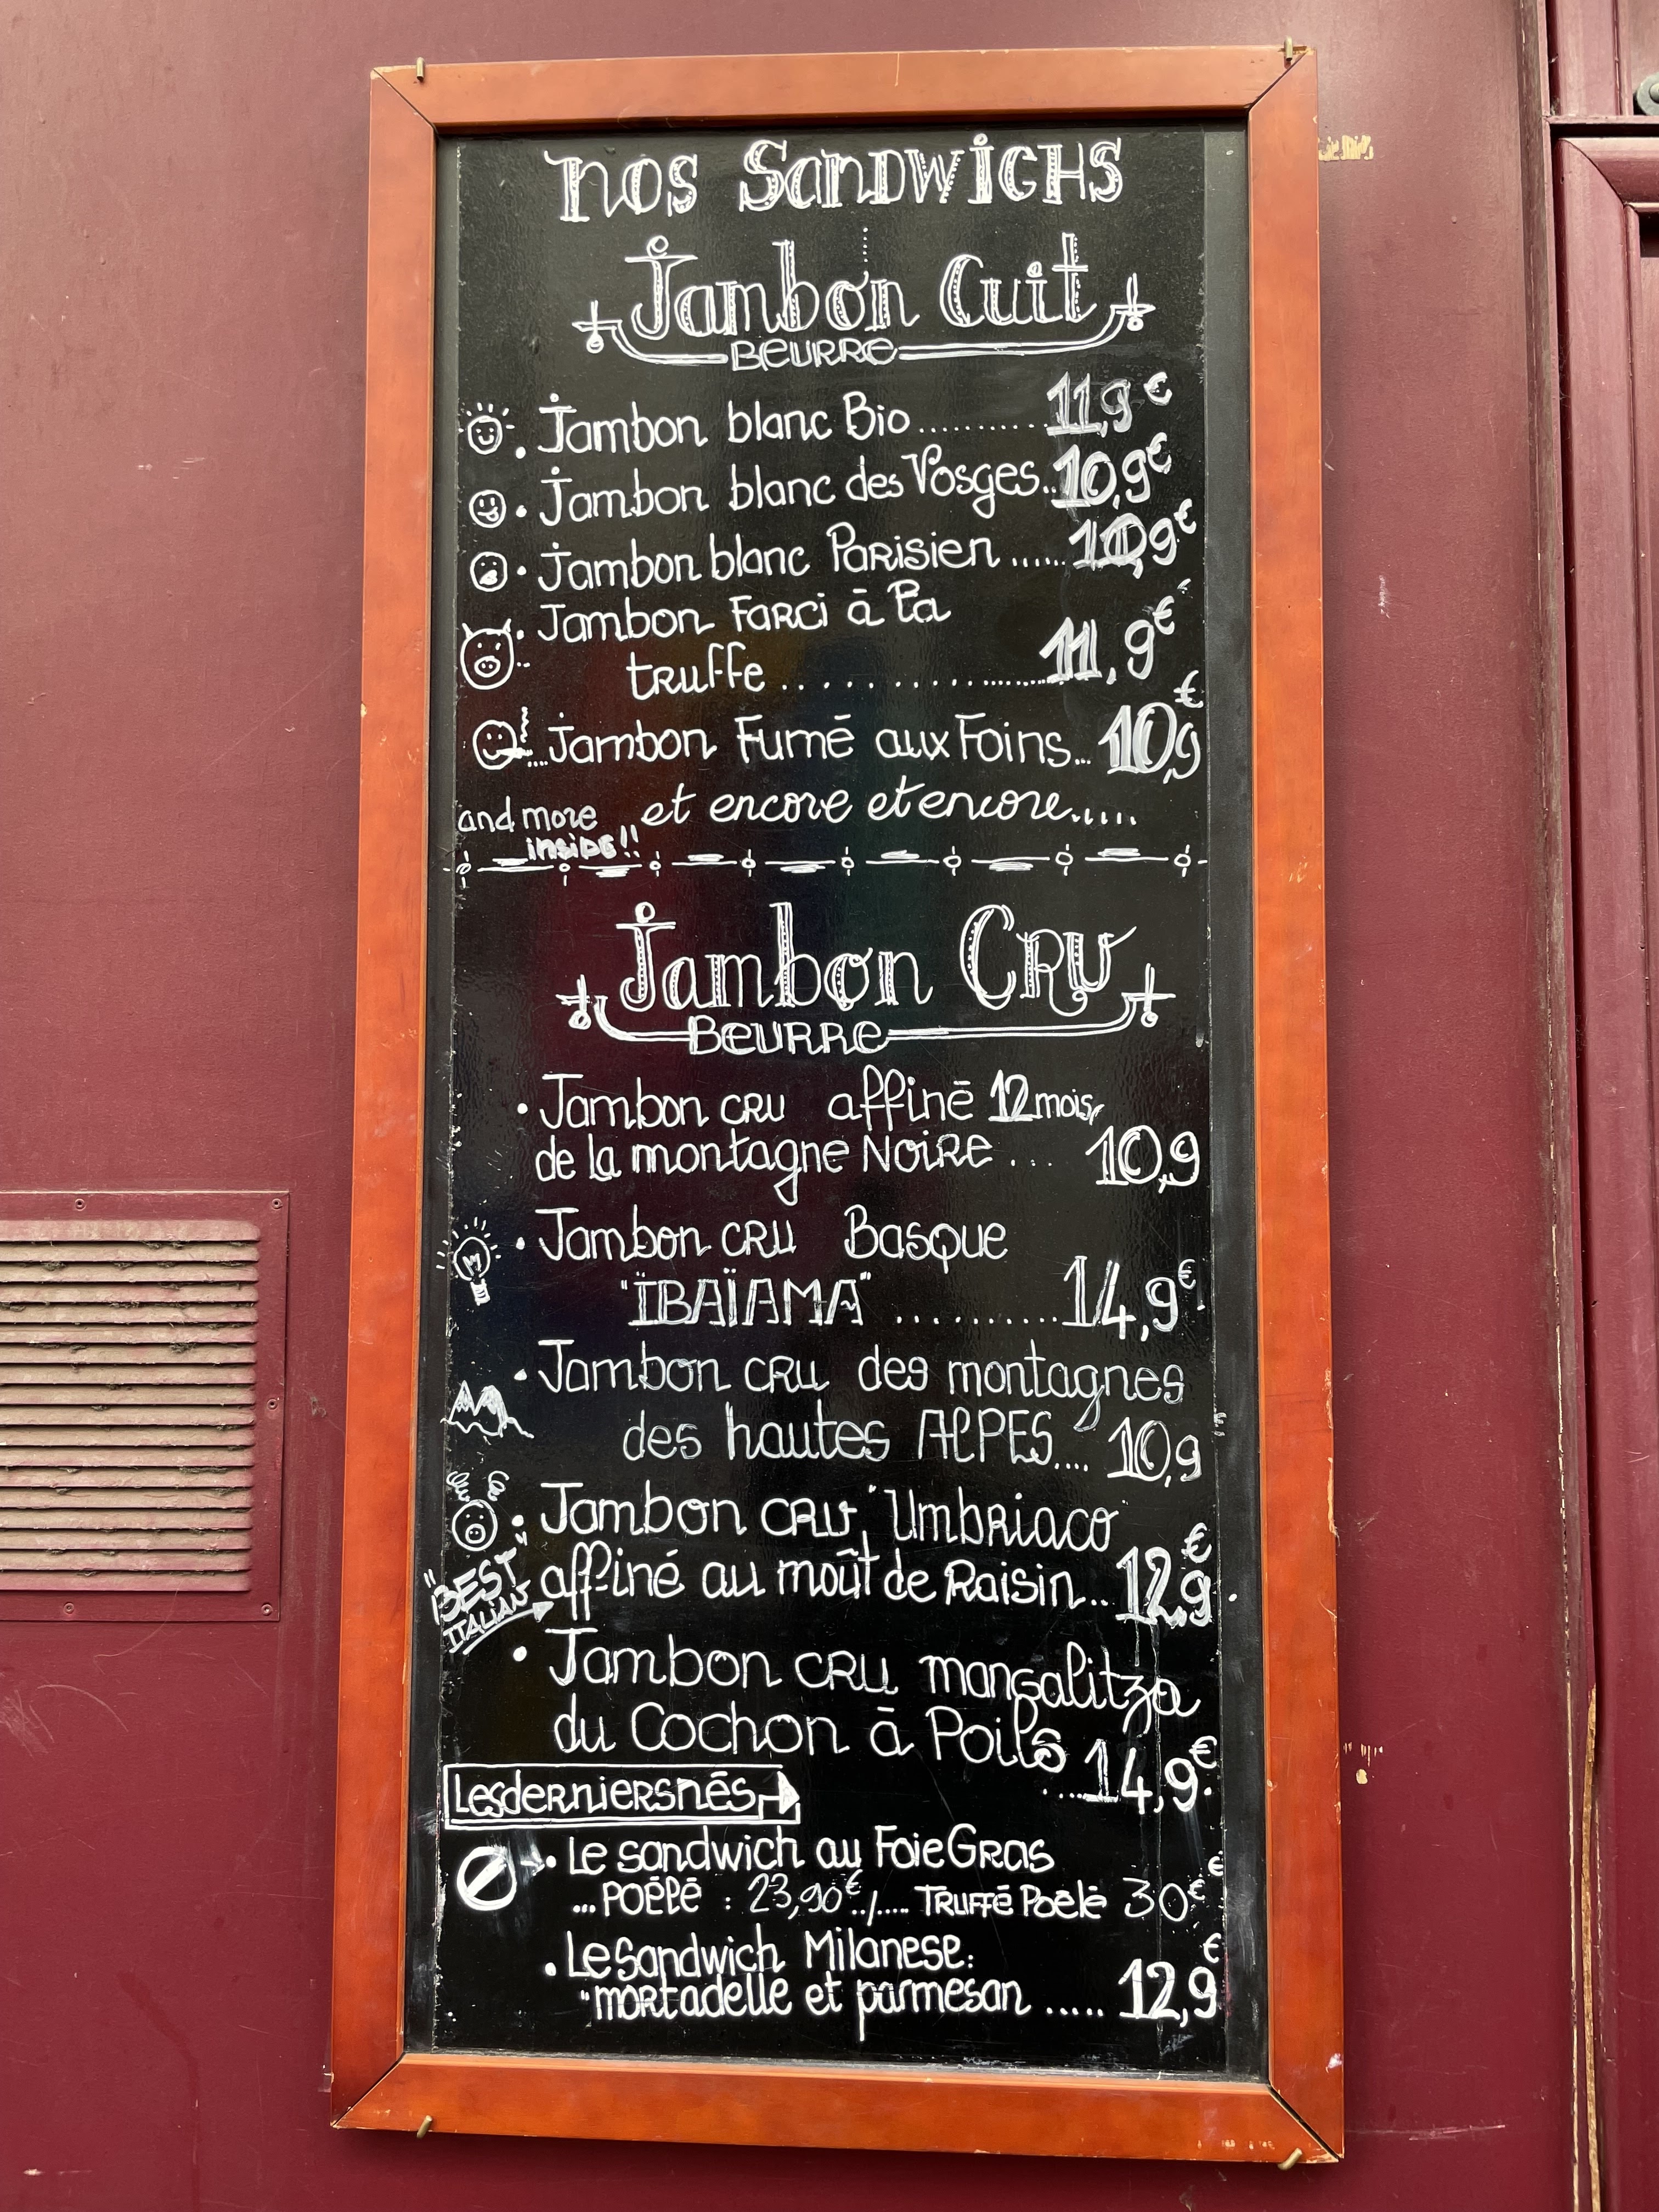 nos Sandwichs
Jambon Cuit
BEURRE
Jambon blanc Bio.......... 11,9€
Jambon blanc des Vosges.. 10,9€
Jambon blanc Parisien ...... 10,9€
Jambon Farci à la
truffe .................. 11,9€
Jambon Fumé aux Foins... 10,9€
and more inside!! et encore et encore.....
Jambon CRU
BEURRE
Jambon CRU affiné 12 mois
de la montagne Noire ... 10,9
Jambon CRU Basque
"ÏBAÏAMA" ........... 14,9€
Jambon CRU des montagnes
des hautes ALPES.... 10,9€
Jambon CRU, "Umbriaco"
"BEST ITALIAN" affiné au moût de Raisin.. 12,9€
Jambon CRU mangalitza
du Cochon à Poils
....14,9€
Les derniers nés
Le sandwich au Foie Gras
... POÊLÉ : 23,90€../..... Truffé Poêlé 30€
Le Sandwich Milanese:
"mortadelle et parmesan ..... 12,9€